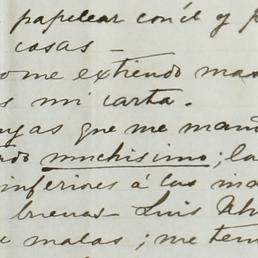 papelear con él y
casas —
me extiendo mas
mi carta.
que me
muchisimo; la
inferiores á las
buenas — Luis
malas; me